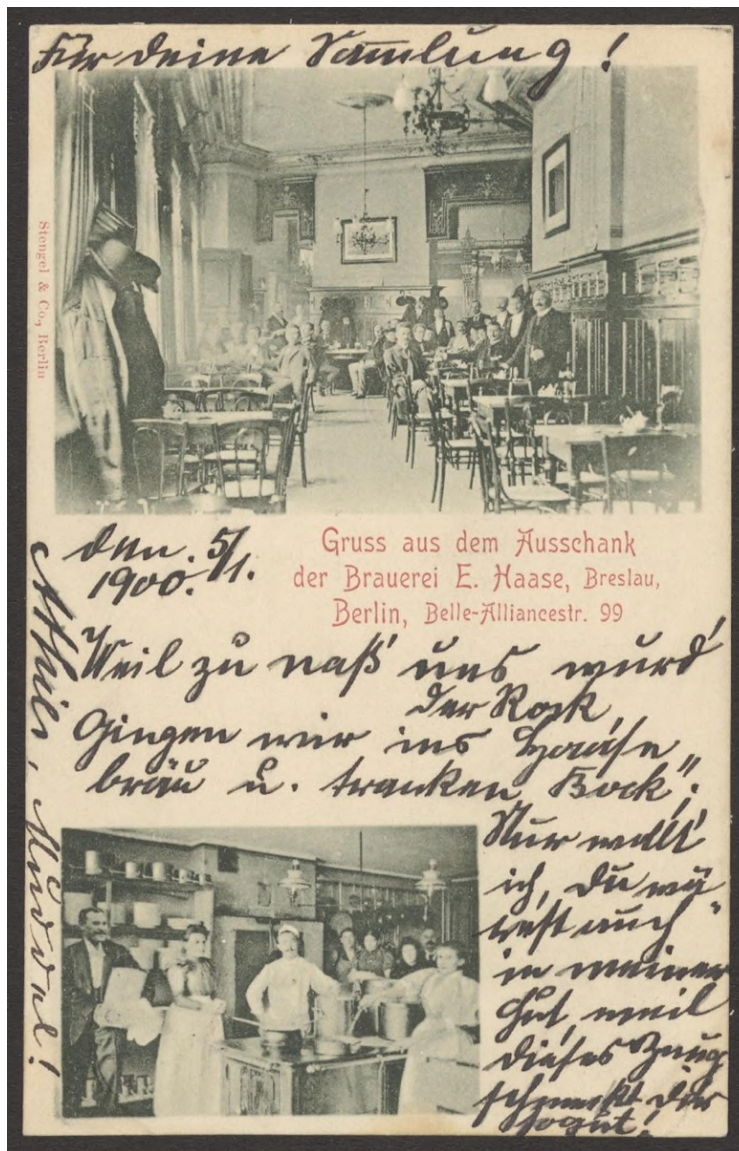 Für deine Sammlung!
Stengel & Co., Berlin
den 5/1.
1900.
Gruss aus dem Ausschank
der Brauerei E. Haase, Breslau,
Berlin, Belle-Alliancestr. 99
Weil zu naß uns wurd'
der Rock,
Gingen wir ins Haase
bräu u. tranken "Bock";
Nur wollt
ich, Du wä
rest auch
in meiner
Hut, weil
dieses Zeug
schmeckt dir
so gut!